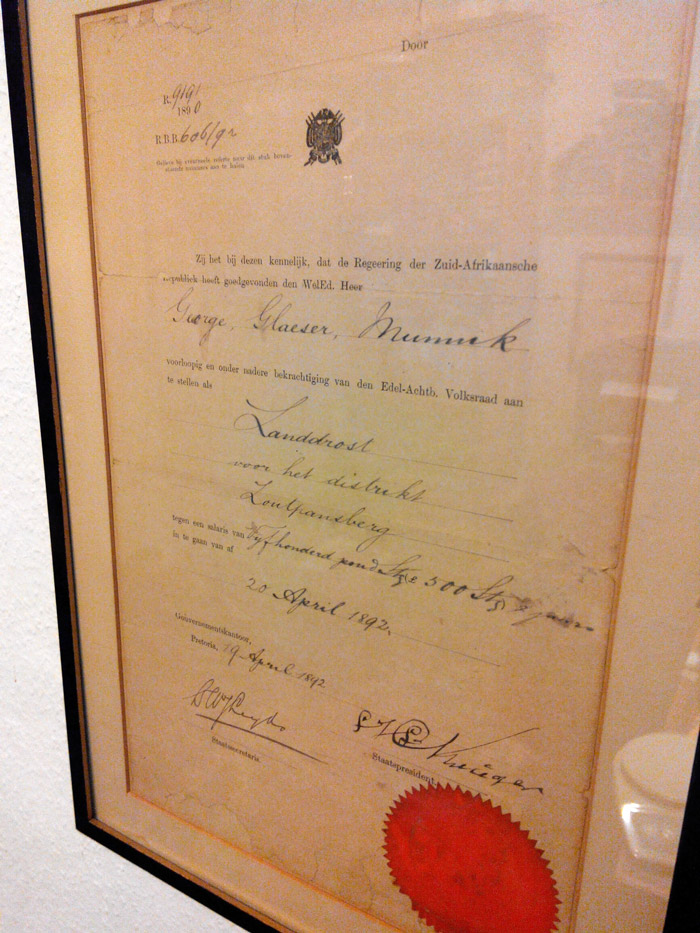 Door
R. 9191
1890
R.B.B. 606/92
Zij het bij dezen kennelijk, dat de Regeering der Zuid-Afrikaansche
Republiek heeft goedgevonden den WelEd. Heer
George, Glaeser, Munnik
voorloopig en onder nadere bekrachtiging van den Edel-Achtb. Volksraad aan
te stellen als
Landdrost
voor het distrikt
Zoutpansberg
tegen een salaris van Vyfhonderd pond Stg (£ 500 Stg)
in te gaan van af
20 April 1892.
Gouvernementskantoor,
Pretoria, 19 April 1892
Staatssecretaris.
S J P Kruger
Staatspresident